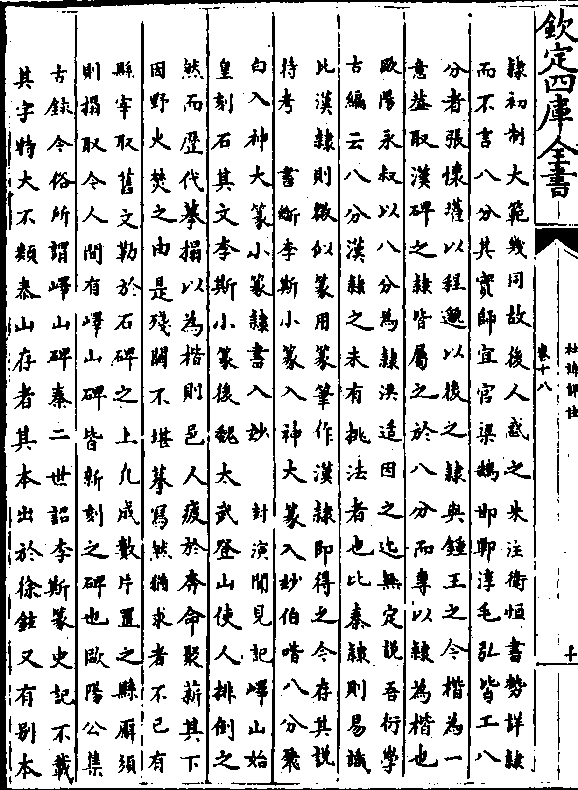 欽定四庫全書
杜詩詳註
卷十八
十
隸初制大範幾同故後人惑之朱注衛恒書勢詳隸
而不言八分其實師宜官梁鵠邯鄲淳毛弘皆工八
分者張懷瓘以程邈以後之隸與鍾王之今楷為一
意葢取漢碑之隸皆屬之於八分而專以隸為楷也
歐陽永叔以八分為隸洪适因之迄無定說吾衍學
古編云八分漢隸之未有挑法者也比秦隸則易識
比漢隸則微似篆用篆筆作漢隸即得之今存其說
待考　書斷李斯小篆入神大篆入妙伯喈八分飛
白入神大篆小篆隸書入妙　封演聞見記嶧山始
皇刻石其文李斯小篆後魏太武登山使人排倒之
然而歷代摹搨以為楷則邑人疲於奔命聚薪其下
因野火焚之由是殘闕不堪摹寫然猶求者不已有
縣宰取舊文勒於石碑之上凡成數片置之縣廨須
則搨取今人間有嶧山碑皆新刻之碑也歐陽公集
古錄今俗所謂嶧山碑秦二世詔李斯篆史記不載
其字特大不類泰山存者其本出於徐鉉又有别本